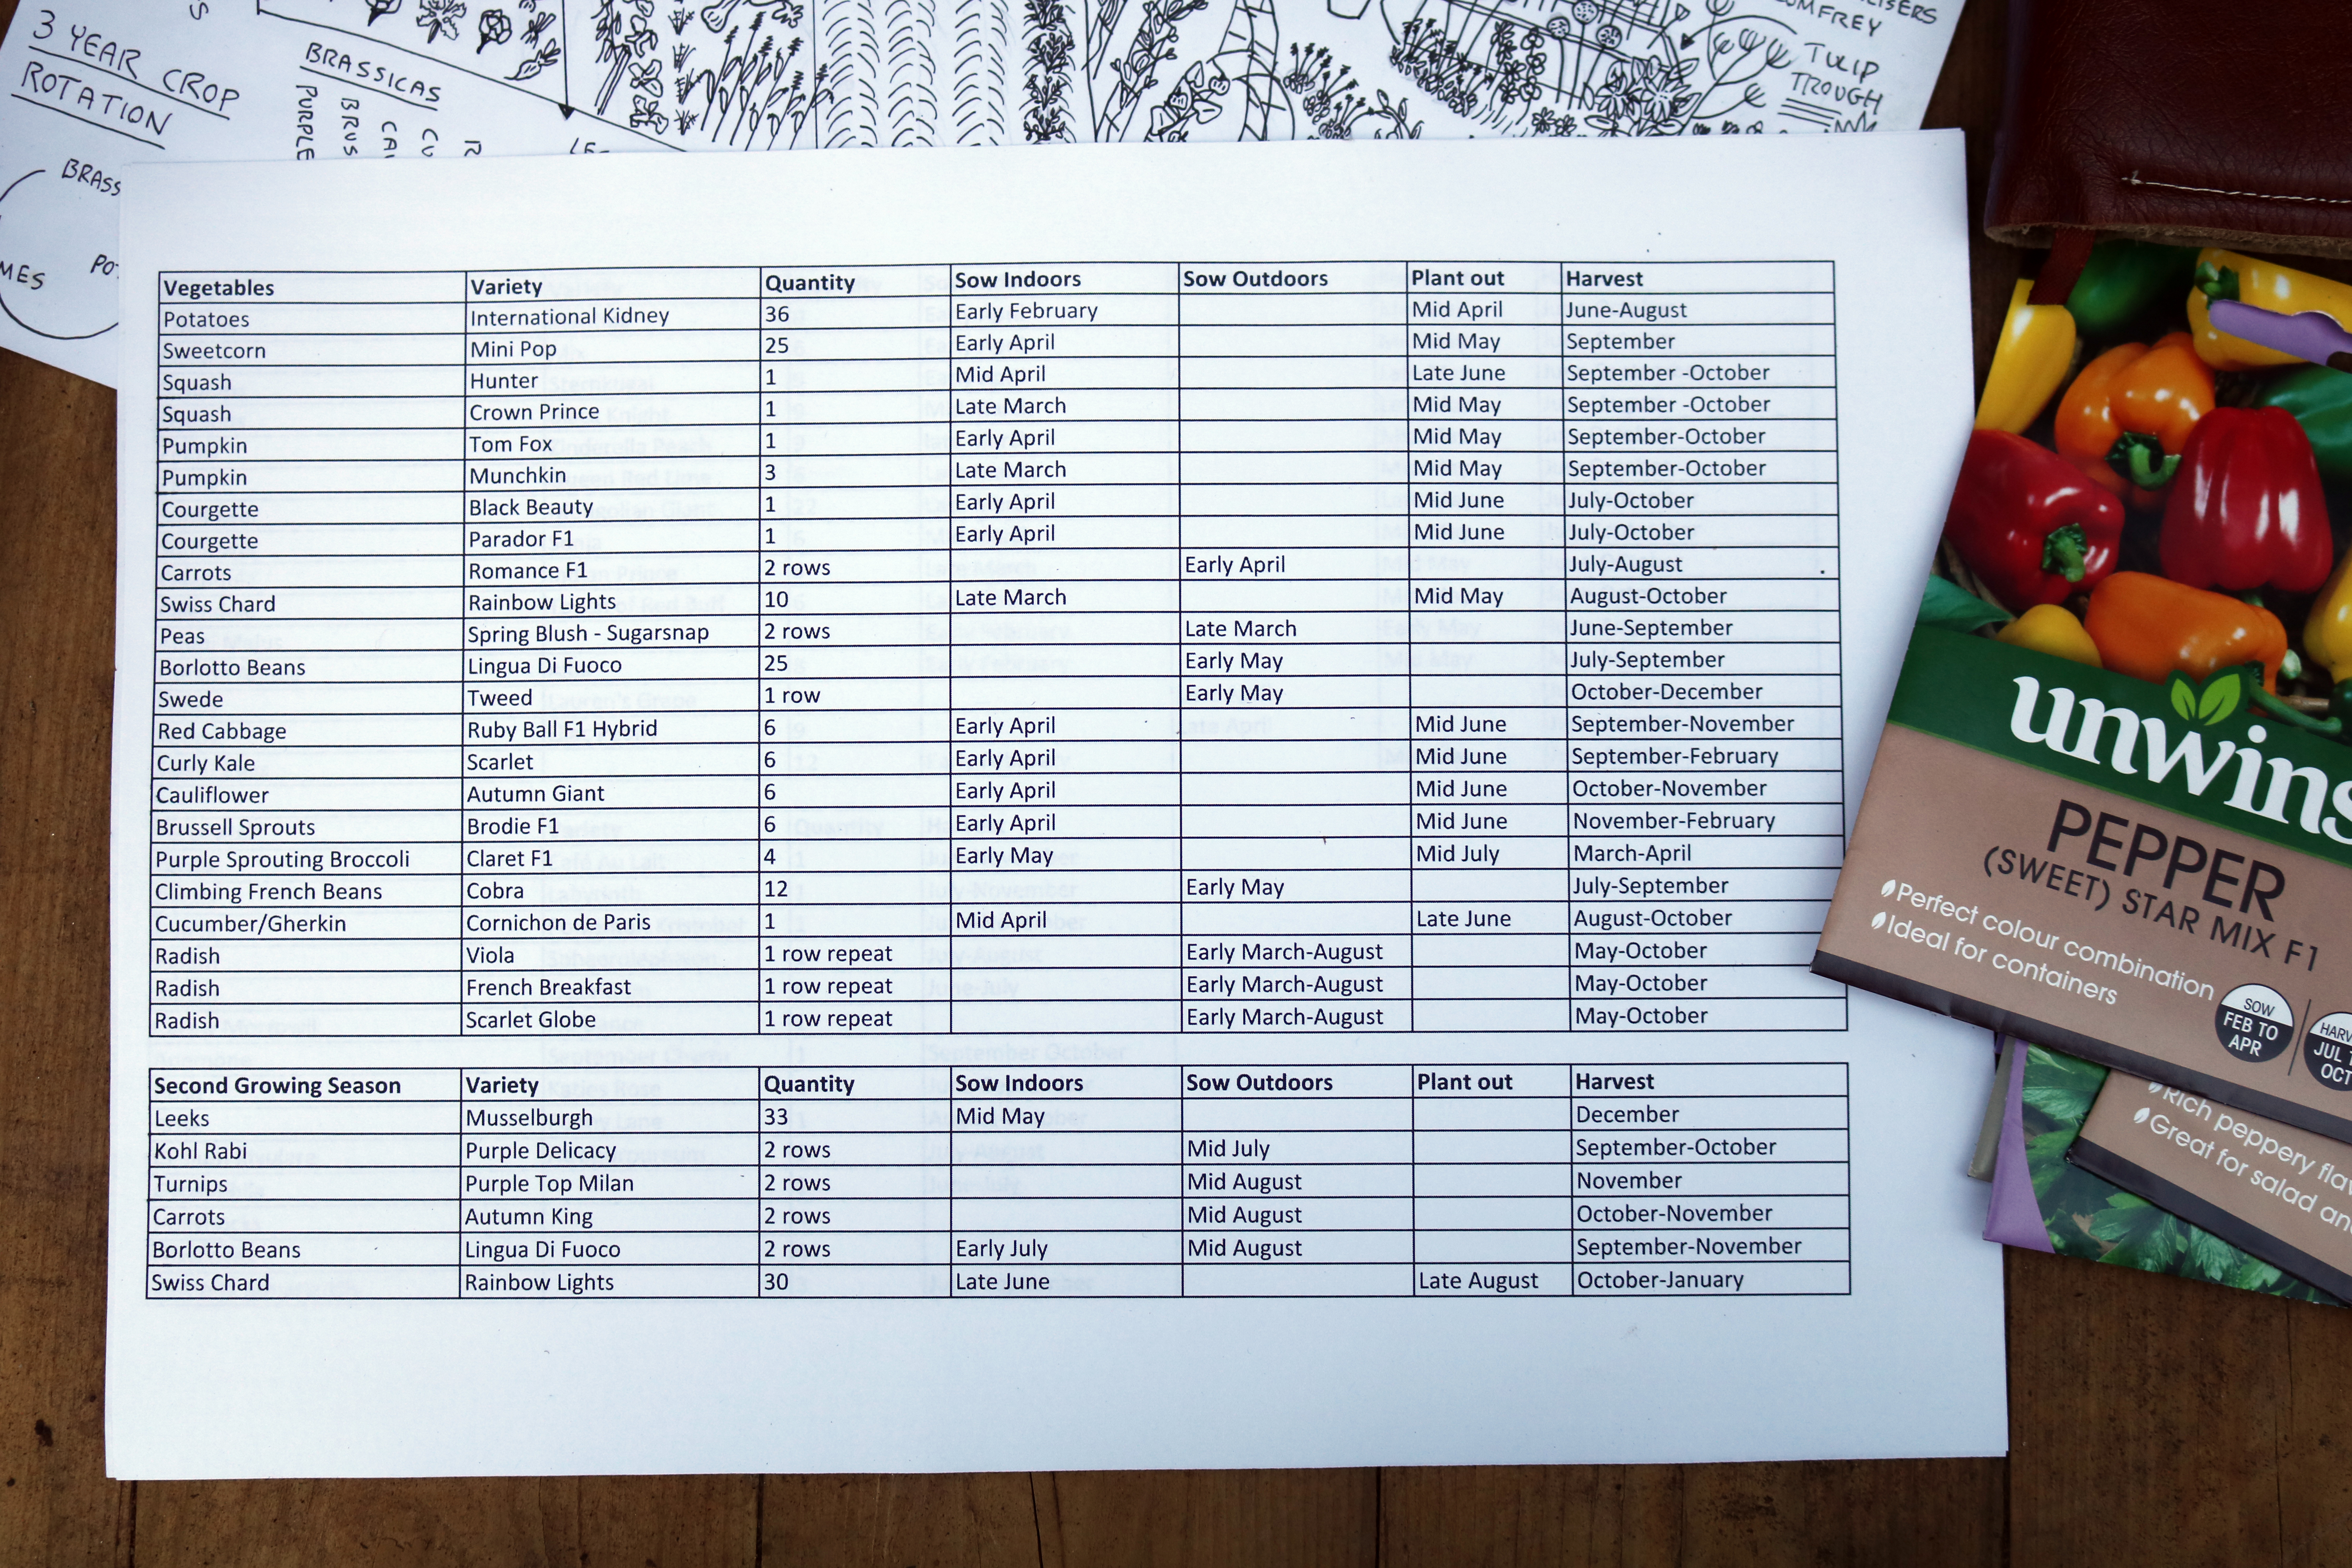 3 YEAR CROP
ROTATION
BRASSICAS
PURPLE
BRUS
BRASS
MES
COMFREY
TULIP
TROUGH
Vegetables Variety Quantity Sow Indoors Sow Outdoors Plant out Harvest
Potatoes International Kidney 36 Early February Mid April June-August
Sweetcorn Mini Pop 25 Early April Mid May September
Squash Hunter 1 Mid April Late June September -October
Squash Crown Prince 1 Late March Mid May September -October
Pumpkin Tom Fox 1 Early April Mid May September-October
Pumpkin Munchkin 3 Late March Mid May September-October
Courgette Black Beauty 1 Early April Mid June July-October
Courgette Parador F1 1 Early April Mid June July-October
Carrots Romance F1 2 rows Early April July-August
Swiss Chard Rainbow Lights 10 Late March Mid May August-October
Peas Spring Blush - Sugarsnap 2 rows Late March June-September
Borlotto Beans Lingua Di Fuoco 25 Early May July-September
Swede Tweed 1 row Early May October-December
Red Cabbage Ruby Ball F1 Hybrid 6 Early April Mid June September-November
Curly Kale Scarlet 6 Early April Mid June September-February
Cauliflower Autumn Giant 6 Early April Mid June October-November
Brussell Sprouts Brodie F1 6 Early April Mid June November-February
Purple Sprouting Broccoli Claret F1 4 Early May Mid July March-April
Climbing French Beans Cobra 12 Early May July-September
Cucumber/Gherkin Cornichon de Paris 1 Mid April Late June August-October
Radish Viola 1 row repeat Early March-August May-October
Radish French Breakfast 1 row repeat Early March-August May-October
Radish Scarlet Globe 1 row repeat Early March-August May-October
Second Growing Season Variety Quantity Sow Indoors Sow Outdoors Plant out Harvest
Leeks Musselburgh 33 Mid May December
Kohl Rabi Purple Delicacy 2 rows Mid July September-October
Turnips Purple Top Milan 2 rows Mid August November
Carrots Autumn King 2 rows Mid August October-November
Borlotto Beans Lingua Di Fuoco 2 rows Early July Mid August September-November
Swiss Chard Rainbow Lights 30 Late June Late August October-January
unwins
PEPPER
(SWEET) STAR MIX F1
Perfect colour combination
Ideal for containers
SOW
FEB TO
APR
HARV
JUL T
OCT
Rich peppery flav
Great for salad an